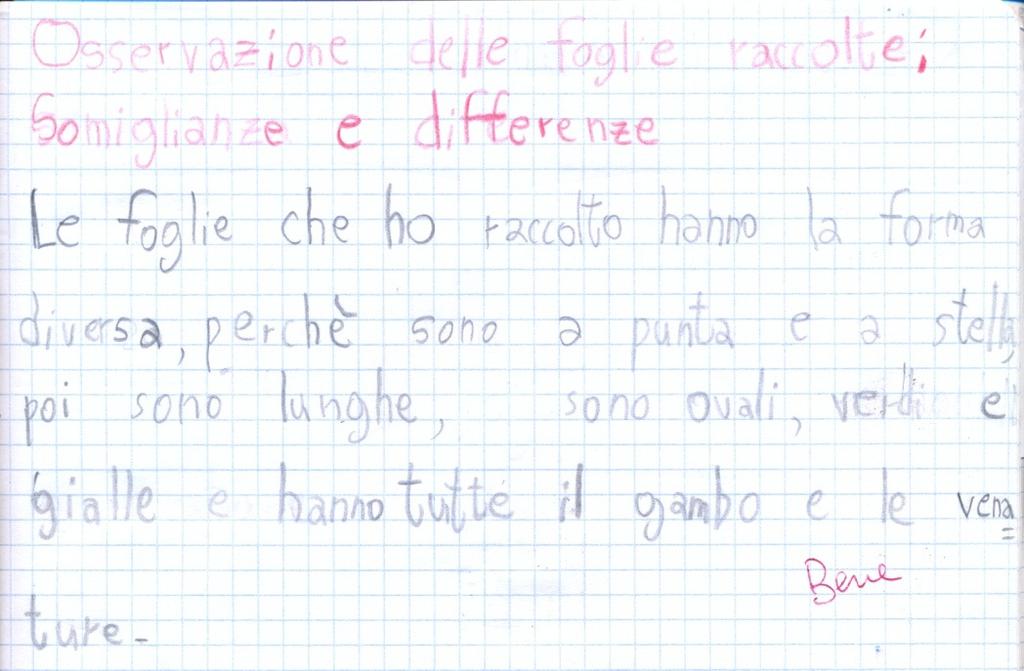 Osservazione delle foglie raccolte;
Somiglianze e differenze
Le foglie che ho raccolto hanno la forma
diversa, perchè sono a punta e a stella,
poi sono lunghe, sono ovali, verdi e
gialle e hanno tutte il gambo e le vena=
Bene
ture-